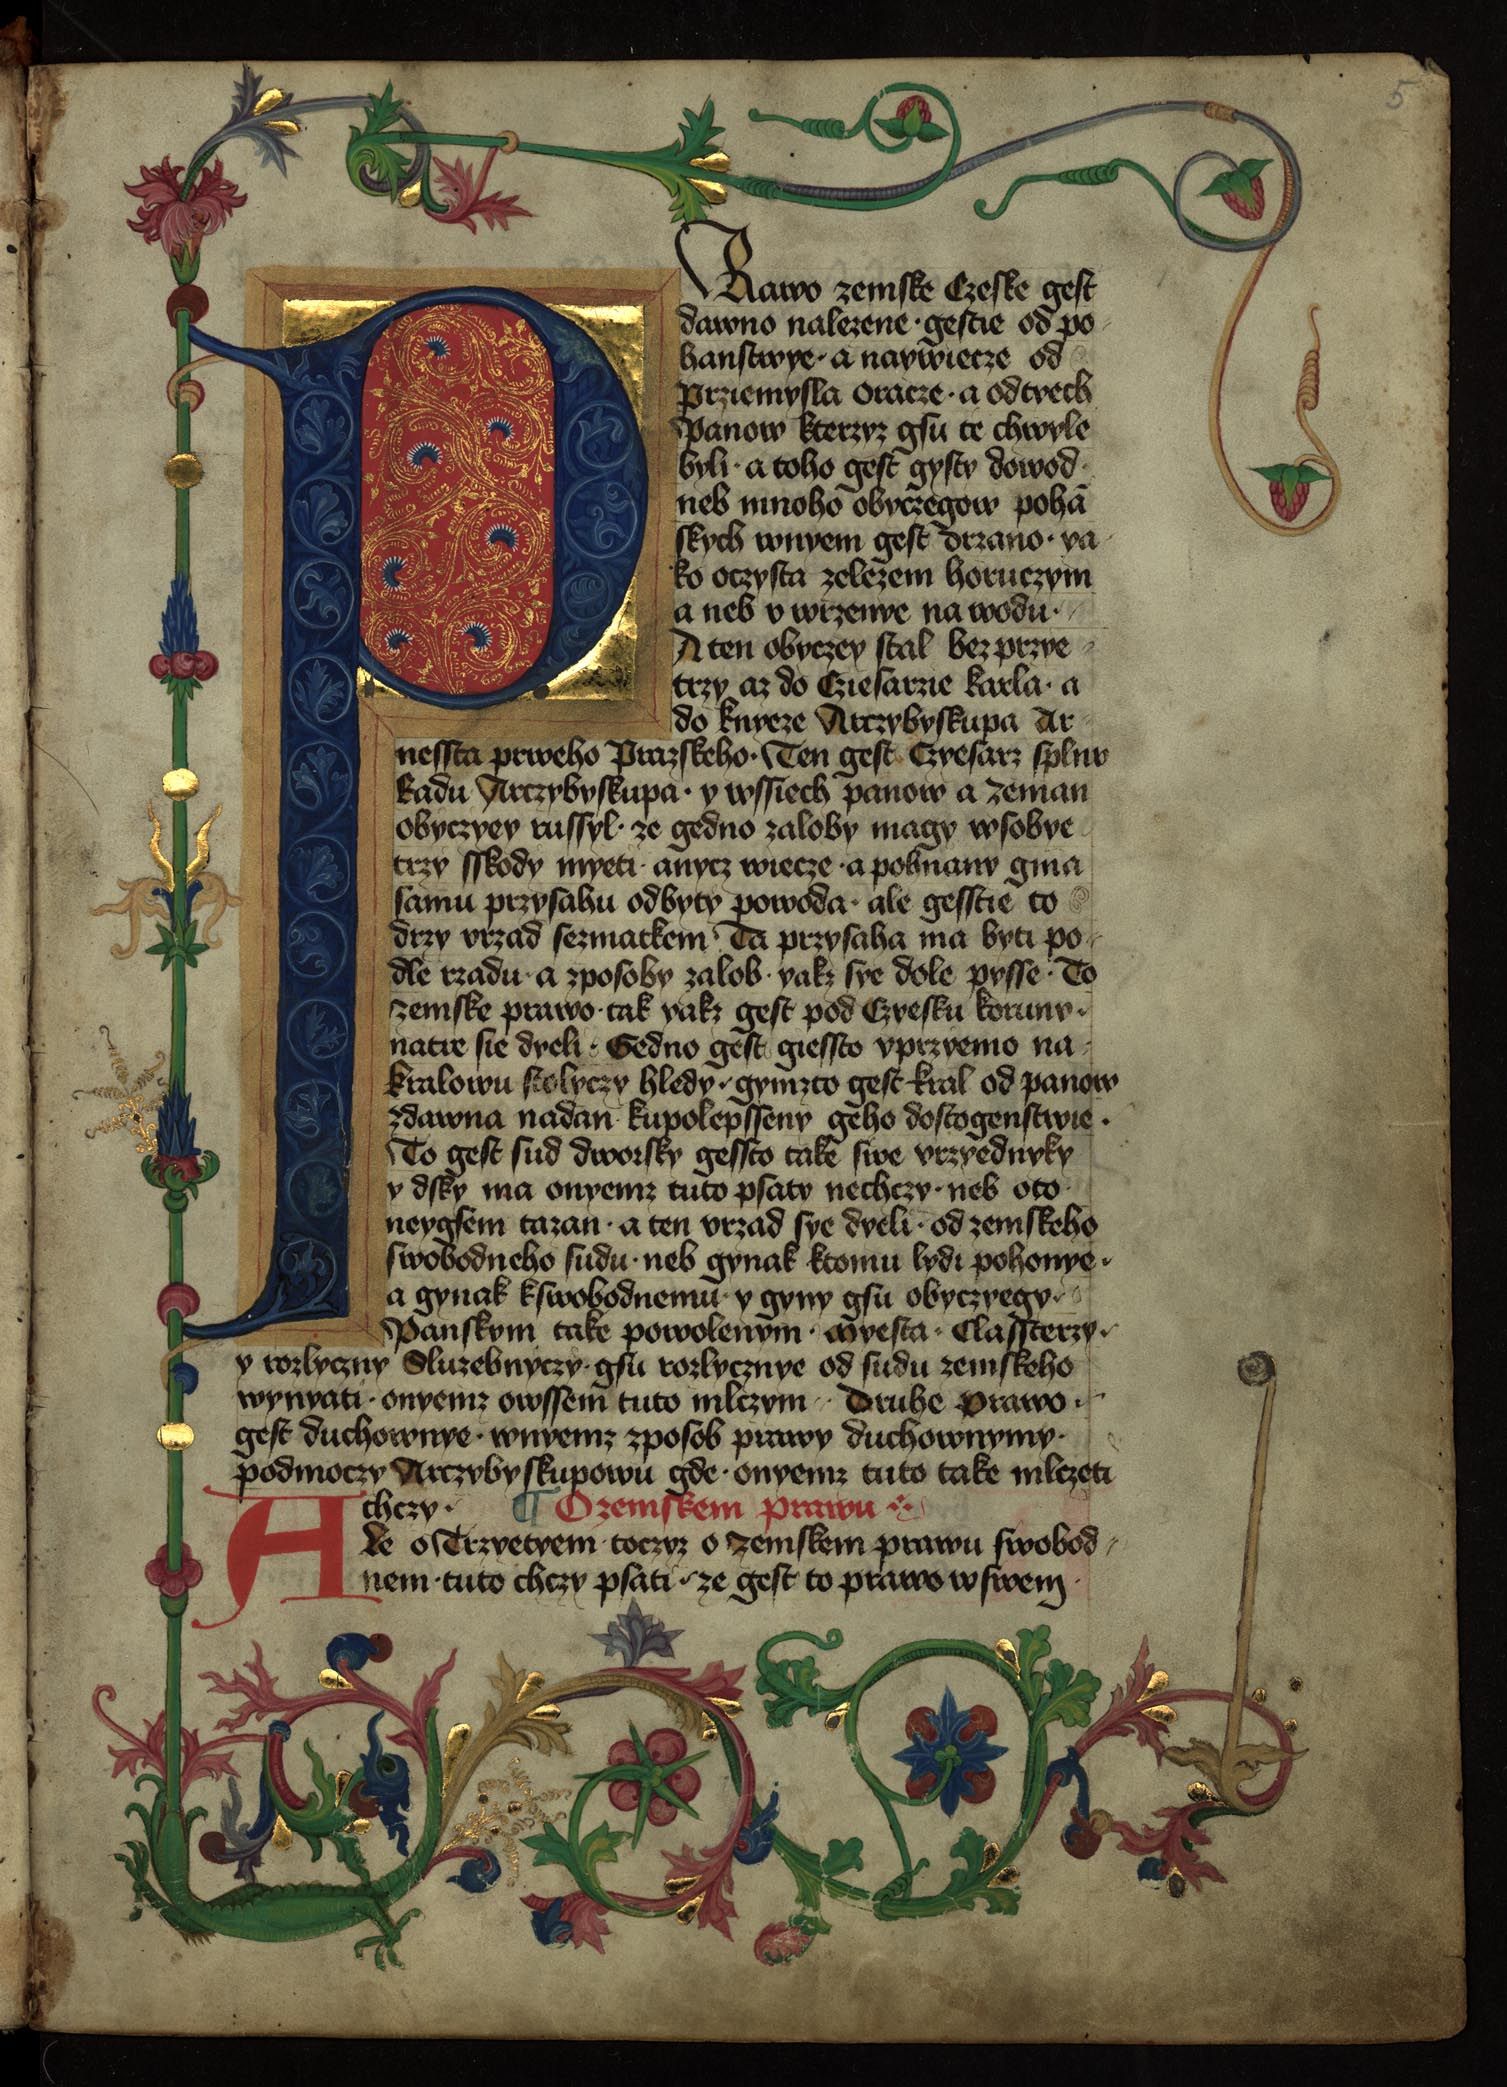 5
PRawo zemske Czeske gest
dawno nalezene · gestie od po
hanstwye · a naywiecze od
Prziemysla Oracze · a odtyech
Panow kterzyz gsu te chwyle
byli · a toho gest gysty dowod ·
neb mnoho obyczegow pohā
skych wnyem gest drzano · ya
ko oczysta zelezem horuczym
a neb v wrzenye na wodu ·
A ten obyczey stal bez przye
trzy az do Cziesarzie Karla · a
do knyeze Arczybyskupa Ar
nessta prweho Prazskeho · Ten gest Czyesarz splnu
Radu Arczybyskupa · y wssiech panow a Zeman
obyczyey russyl · ze gedno zaloby magy wsobye
trzy sskody myeti · anycz wiecze · a pohnany gma
samu przysahu odbyty powoda · ale gesstie to
drzy vrzad sezmatkem · Ta przysaha ma byti po
dle rzadu · a zposoby zalob · yakz sye dole pysse · To
zemske prawo · tak yakz gest pod Czyesku koruny ·
natre sie dyeli · Gedno gest giessto vprzyemo na
kralowu stolyczy hledy · gymzto gest kral od panow
zdawna nadan kupolepsseny geho dostogenstwie ·
To gest sud dworsky gessto take swe vrzyednyky
y dsky ma onyemz tuto psaty nechczy · neb oto
neygsem tazan · a ten vrzad sye dyeli · od zemskeho
swobodneho sudu · neb gynak ktomu lydi pohonye ·
a gynak kswobodnemu · y gyny gsu obyczyegy ·
Panskym take powolenym · Myesta · Classterzy ·
y rozlyczny Sluzebnyczy · gsu rozlycznye od sudu zemskeho
wynyati · onyemz owssem tuto mlczym · Druhe Prawo ·
gest duchownye · wnyemz zposob prawy duchownymy ·
podmoczy Arczybyskupowu gde · onyemz tuto take mlczeti
chczy · ¶ O zemskem prawu
Ale o Trzyetyem · toczyz o zemskem prawu swobod
nem · tuto chczy psati · ze gest to prawo w swem